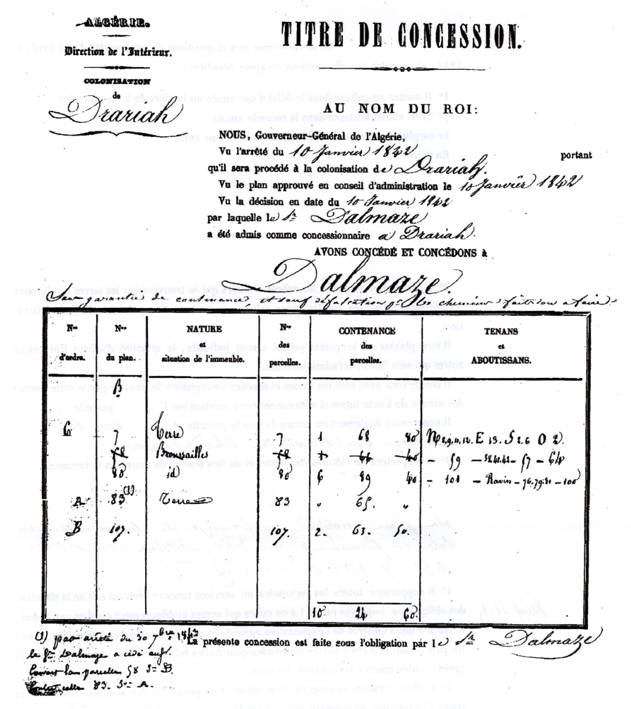 ALGÉRIE.
Direction de l'Intérieur.
COLONISATION
de
Drariah
TITRE DE CONCESSION.
AU NOM DU ROI:
NOUS, Gouverneur-Général de l'Algérie,
Vu l'arrêté du 10 Janvier 1842 portant
qu'il sera procédé à la colonisation de Drariah.
Vu le plan approuvé en conseil d'administration le 10 Janvier 1842
Vu la décision en date du 10 Janvier 1842
par laquelle le Sr Dalmaze
a été admis comme concessionnaire a Drariah.
AVONS CONCÉDÉ ET CONCÉDONS à
Dalmaze.
Sans garantie de contenance, et sauf les chemins faits ou a faire
Nos d'ordre. Nos du plan. NATURE et situation de l'immeuble. Nos des parcelles. CONTENANCE des parcelles. TENANS et ABOUTISSANS.
B
C 7 Terre 7 1 68 80
58 Broussailles 58
80 id 80 6 89 40 - 101 - Ravin - 76.79.81 - 100
A 83 (1) Terre 83 " 65. "
B 107. 107. 2. 63. 50.
10 24 60
(1) par arrêté du 30 7bre 1842
le Sr Dalmaze a cédé au Sr
parcelles 58 Son B.
83. Son A.
La présente concession est faite sous l'obligation par le Sr Dalmaze